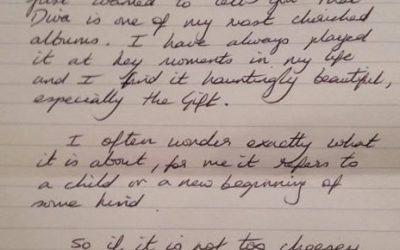 just wanted to tell you that
Diva is one of my most cherished
albums. I have always played
it at key moments in my life
and I find it hauntingly beautiful,
especially the Gift.
I often wonder exactly what
it is about, for me it refers to
a child or a new beginning of
some kind
So if it is not too cheesey